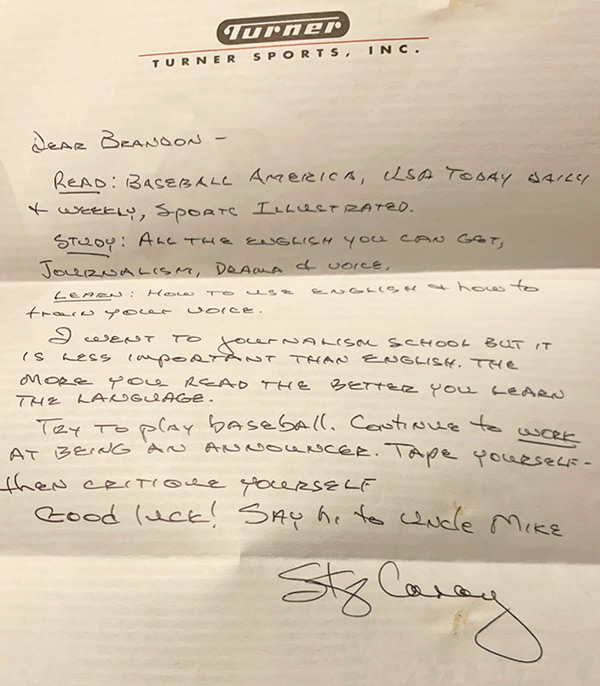 Turner
TURNER SPORTS, INC.
DEAR BRANDON -
READ: BASEBALL AMERICA, USA TODAY DAILY
+ WEEKLY, SPORTS ILLUSTRATED.
STUDY: ALL THE ENGLISH YOU CAN GET,
JOURNALISM, DRAMA & VOICE.
LEARN: HOW TO USE ENGLISH & how to
train your voice.
I WENT TO JOURNALISM SCHOOL BUT IT
IS LESS IMPORTANT THAN ENGLISH. THE
MORE YOU READ THE BETTER YOU LEARN
THE LANGUAGE.
TRY TO play baseball. Continue to WORK
AT BEING AN ANNOUNCER. TAPE YOURSELF -
then CRITIQUE YOURSELF
Good luck! SAY hi to Uncle MIKE
Skip Caray